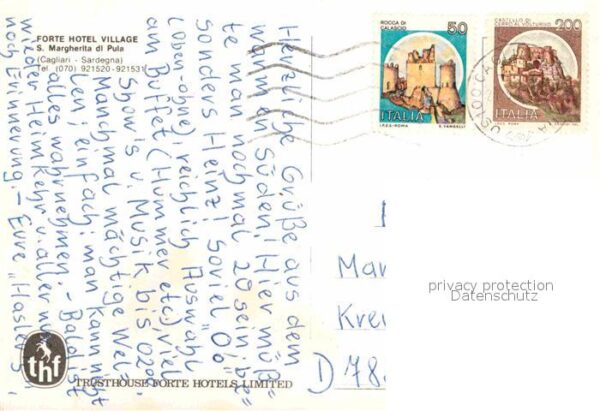 FORTE HOTEL VILLAGE
S. Margherita di Pula
(Cagliari - Sardegna)
Tel (070) 921520-921531
ROCCA DI
CALASCIO
50
ITALIA
I.P.Z.S.-ROMA
200
ITALIA
Herzliche Grüße aus dem
warmen Süden! Hier müß=
te man nochmal 20 sein be=
sonders Heinz! Soviel "Oo"
(oben-ohne), reichlich Auswahl
am Buffet (Hummer etc.) viel
Show's u. Musik bis 02.00.
Manchmal mächtige Wel=
len, einfach: man kann nicht
alles wahrnehmen. - Bald ist
wieder Heimkehr u. aller nur
noch Erinnerung. - Eure "Hasler's"
Mar
Kre
D 78
privacy protection
Datenschutz
thf
TRUSTHOUSE FORTE HOTELS LIMITED